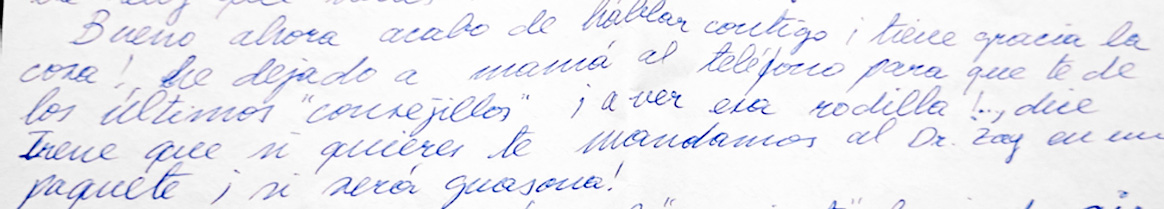 Bueno ahora acabo de hablar contigo ¡ tiene gracia la
cosa! he dejado a mamá al teléfono para que te de
los últimos "consejillos" ¡ a ver esa rodilla!.., dice
Irene que si quieres te mandamos al Dr. Zag en un
paquete ¡ si será guasona!